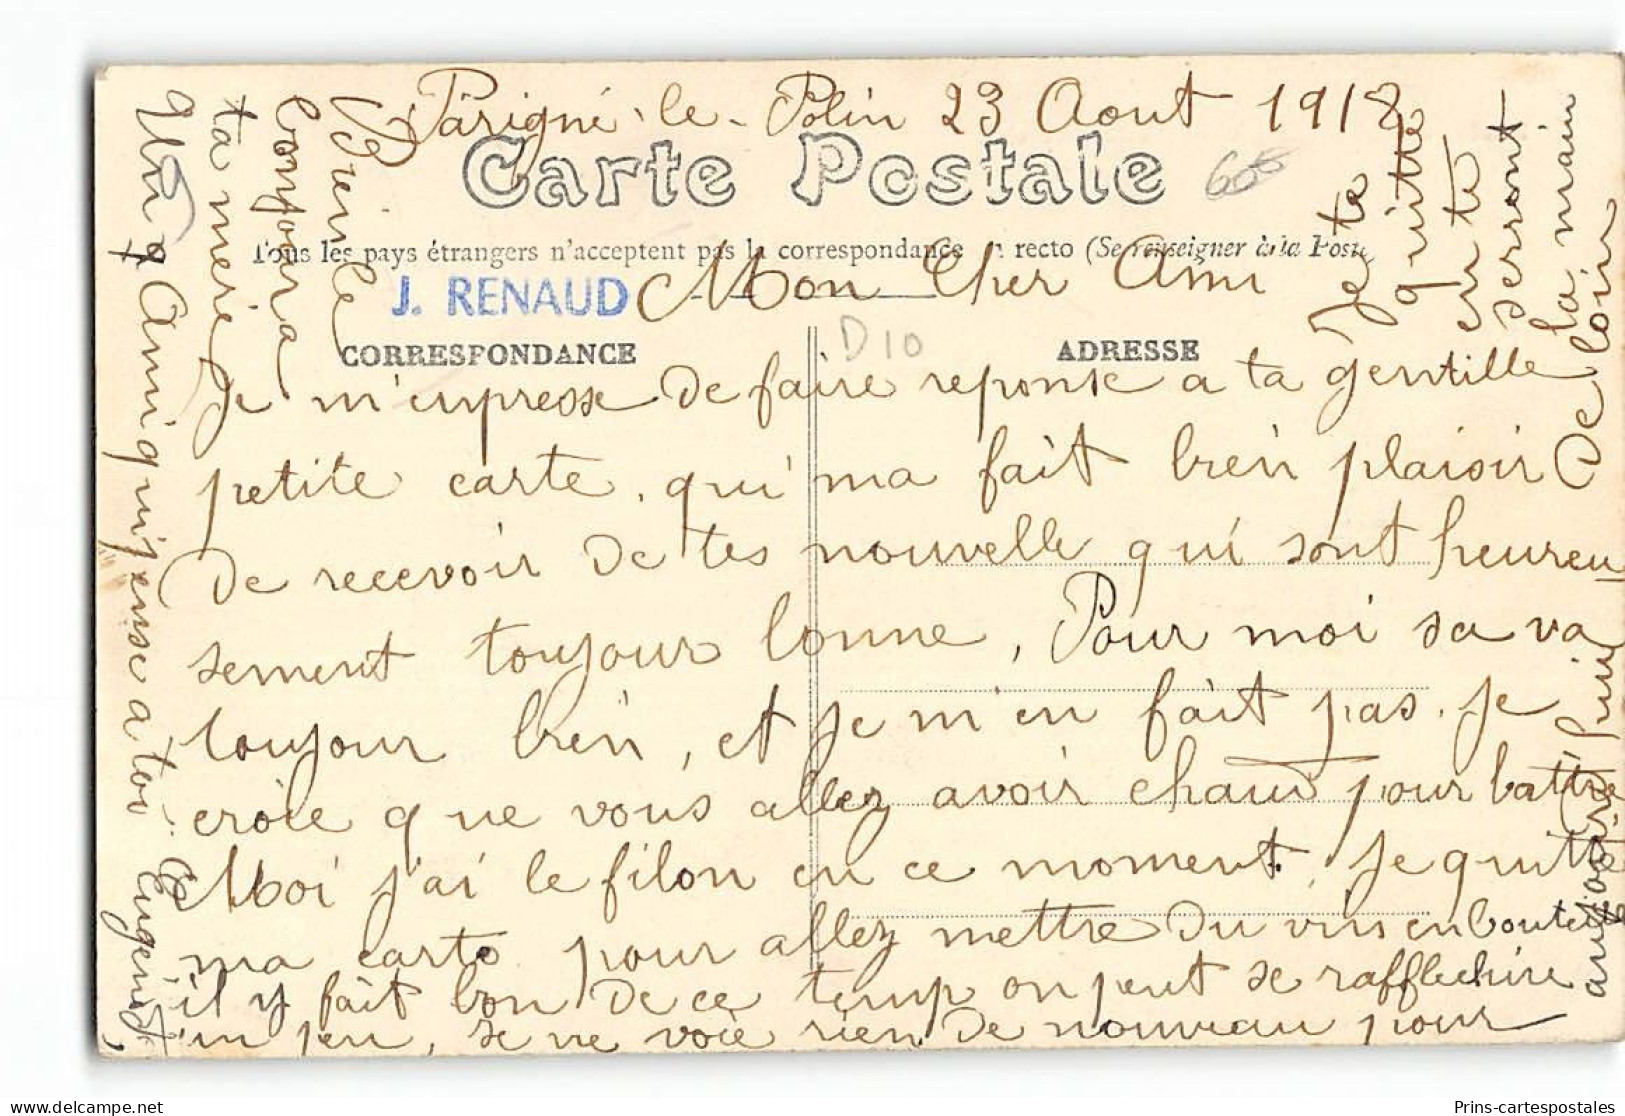 Parigné-le-Polin 23 Aout 1918
Carte Postale
Tous les pays étrangers n'acceptent pas la correspondance recto (Se renseigner à la Poste
J. RENAUD
Mon Cher Ami
D10
CORRESPONDANCE
ADRESSE
Je m'enpresse de faire reponse a ta gentille
petite carte, qui ma fait bien plaisir
de recevoir de tes nouvelle qui sont heureu
sement toujour bonne, Pour moi sa va
toujour bien, et je m'en fait pas. Je
croie que vous allez avoir chaud pour battre
Moi j'ai le filon en ce moment. Je quitte
ma carte pour allez mettre du vin en bouteille
il y fait bon de ce temp on peut se rafflechire
un peu, Je ne voie rien de nouveau pour
aujourd'hui
Je te
quitte
en te
serront
la main
de loin
Bien le
bonjour a
ta mere
Un Ami qui pense a toi
Eugene
Prins-cartespostales